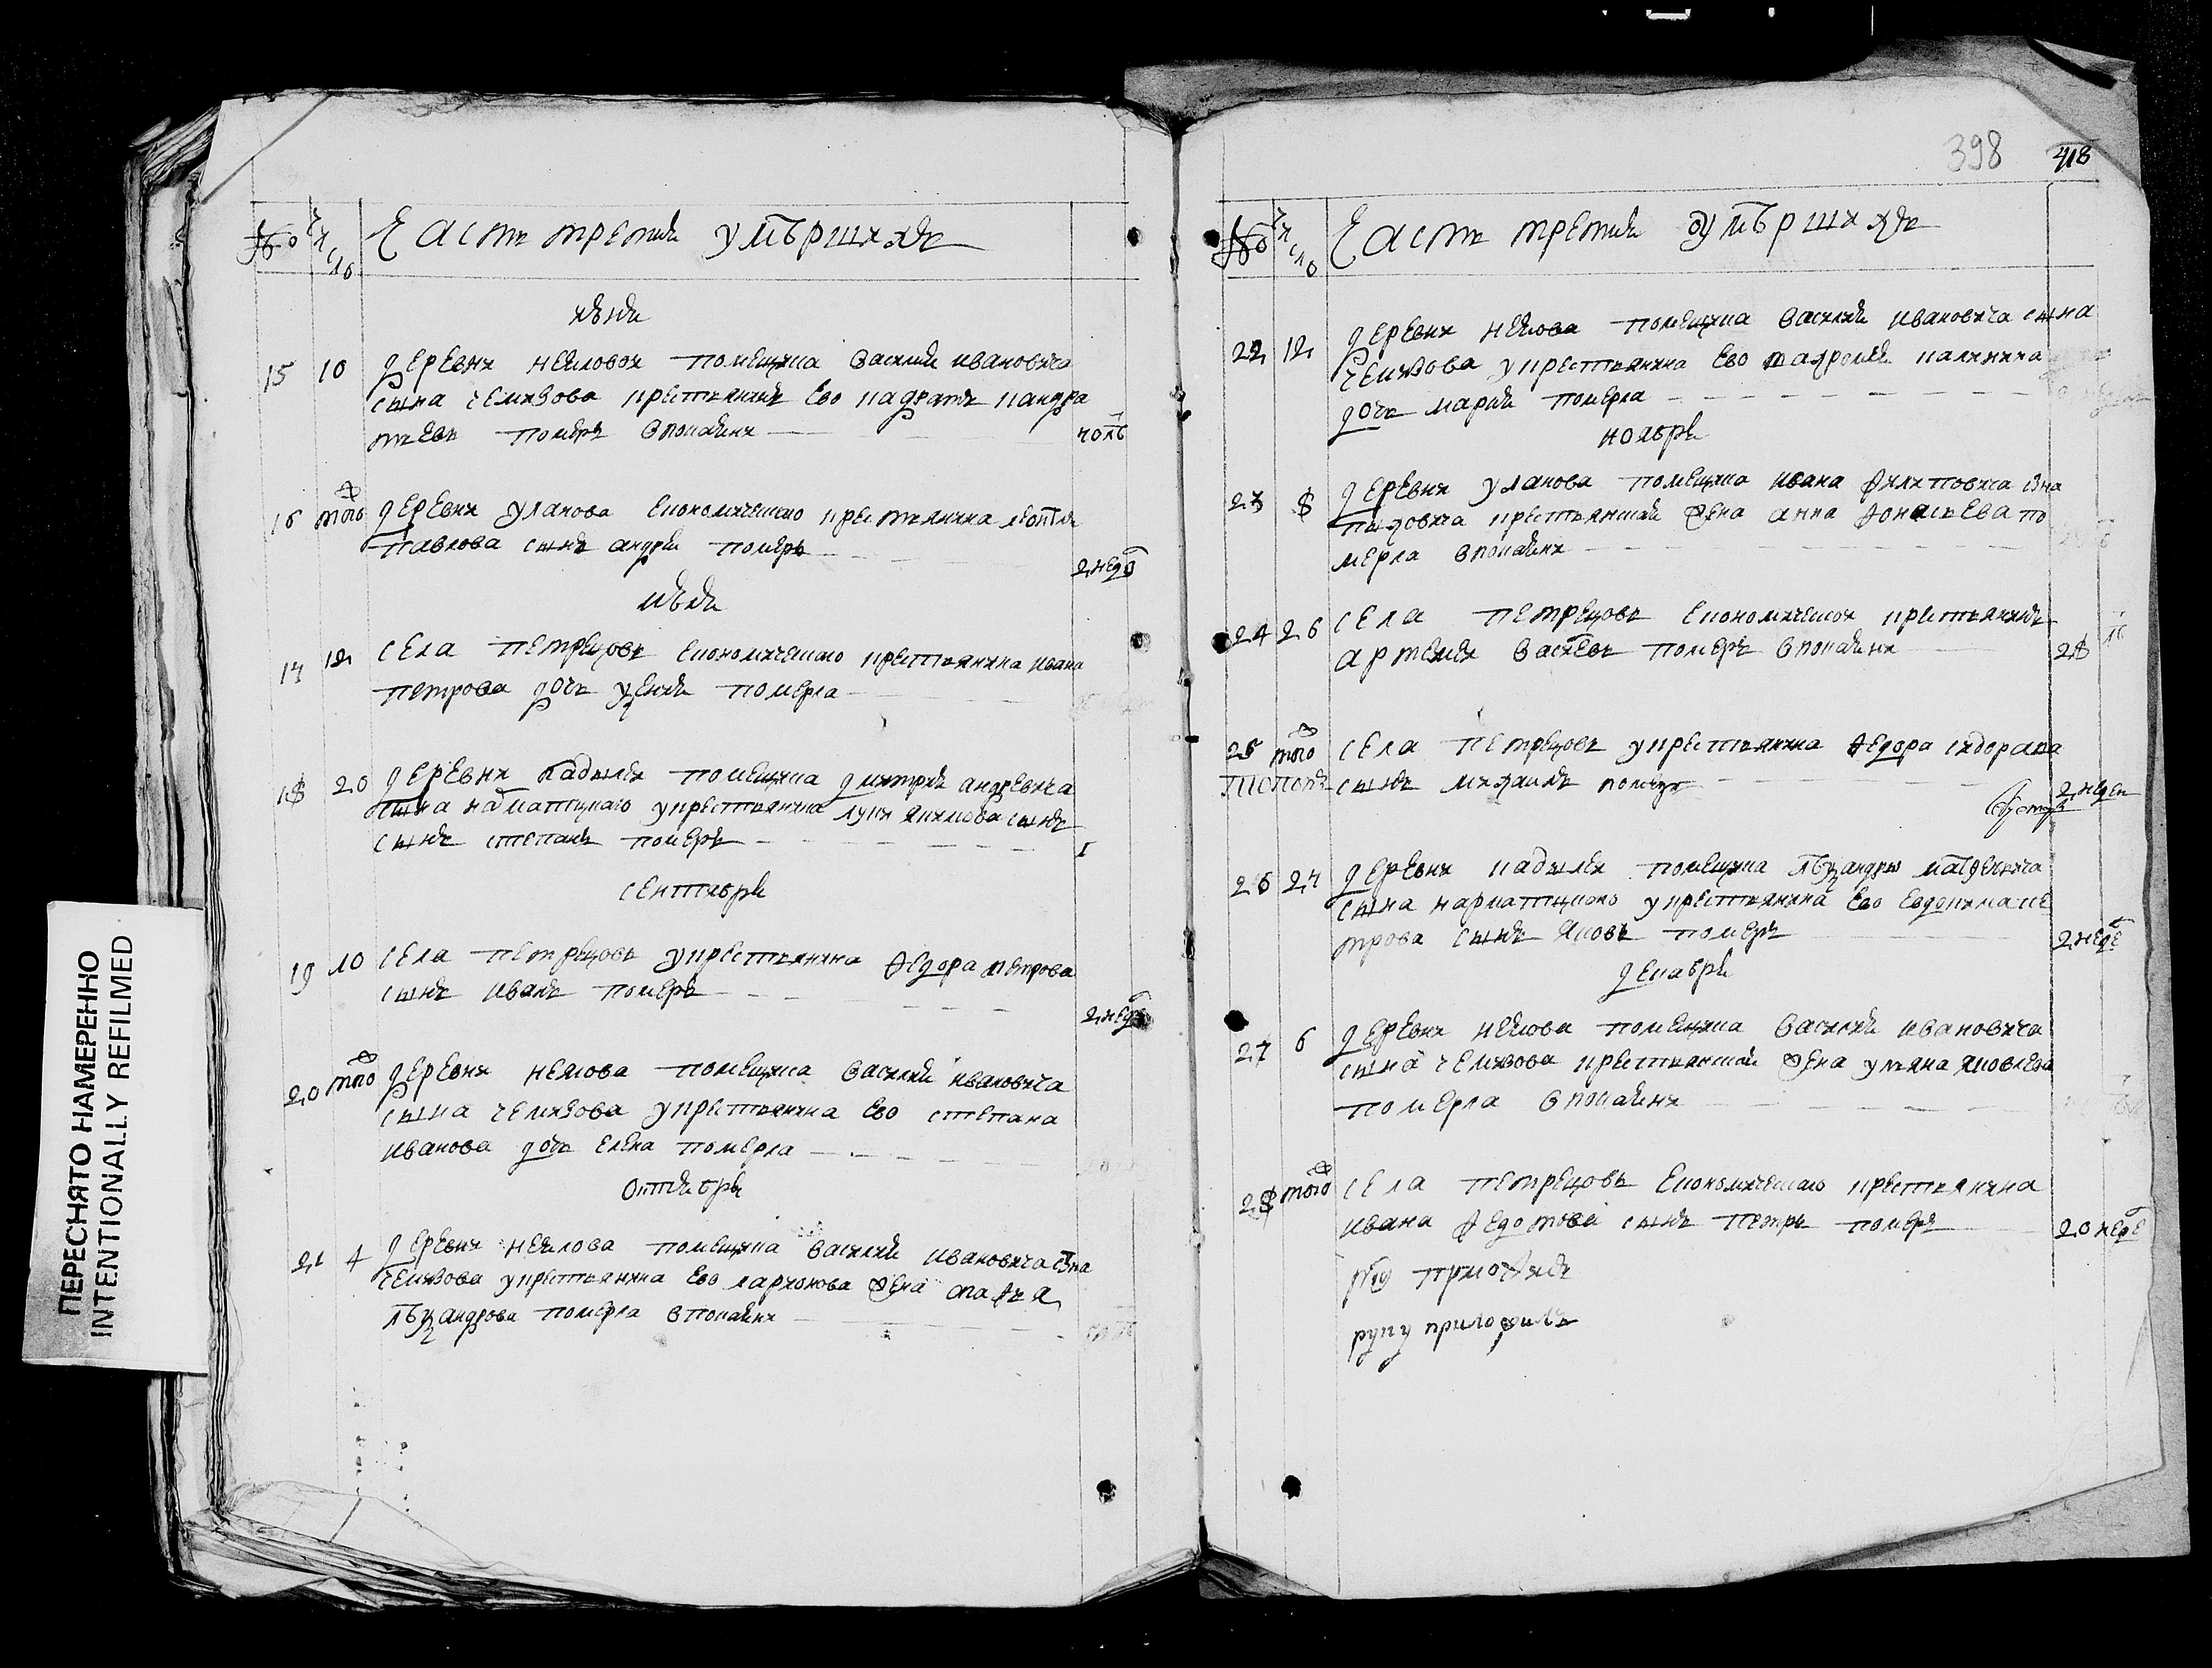 398 418
№ число Часть третия умершихъ
июня
15 10 деревни неиловои помещика василия ивановича
сына чемизова крестьянинъ ево кадратъ кандра
тьевъ померъ спокаяни
16 того деревни уланова економическаго крестьянина леонтя
павлова сынъ андреи померъ
2 неде
июля
17 12 села петрецовъ економическаго крестьянина ивана
петрова дочь ксения померла
18 20 деревни кадылеи помещика дмитрия андреевича
сына нарматцкаго у крестьянина луки якимова сынъ
сынъ степанъ померъ 1
сентября
19 10 села петрецовъ у крестьянина федора петрова
сынъ иванъ померъ
2 неде
20 того деревни неилова помещика василия ивановича
сына чемизова у крестьянина ево степана
иванова дочь елена померла
октября
21 4 деревни неилова помещика василия ивановича сна
чемизова у крестьянина ево ларионова жена
александрова померла спокаяни
№ число Часть третия умершихъ
22 12 деревни неилова помещика василия ивановича сына
чемизова у крестьянина ево калинина
дочь мария померла
ноября
23 8 деревни уланова помещика ивана филиповича сна
пыховича крестьянская жена анна афонасьева по
мерла спокаяни
24 26 села петрецовъ економическои крестьянинъ
артемеи васиевъ померъ спокаяни 28
25 того села петрецовъ у крестьянина федора сидорава
сынъ михаилъ померъ
2 недел
26 27 деревни кадылеи помещика александры матфеевича
сына нарматцкого у крестьянина ево евдокима пе
трова сынъ яковъ померъ 2 неде
декабря
27 6 деревни неилова помещика василия ивановича
сына чемизова крестьянская жена ульяна яковлева
померла спокаяни
28 того села петрецовъ економическаго крестьянина
ивана федотова сынъ петръ померъ 20 неде
руку приложилъ
ПЕРЕСНЯТО НАМЕРЕННО
INTENTIONALLY REFILMED